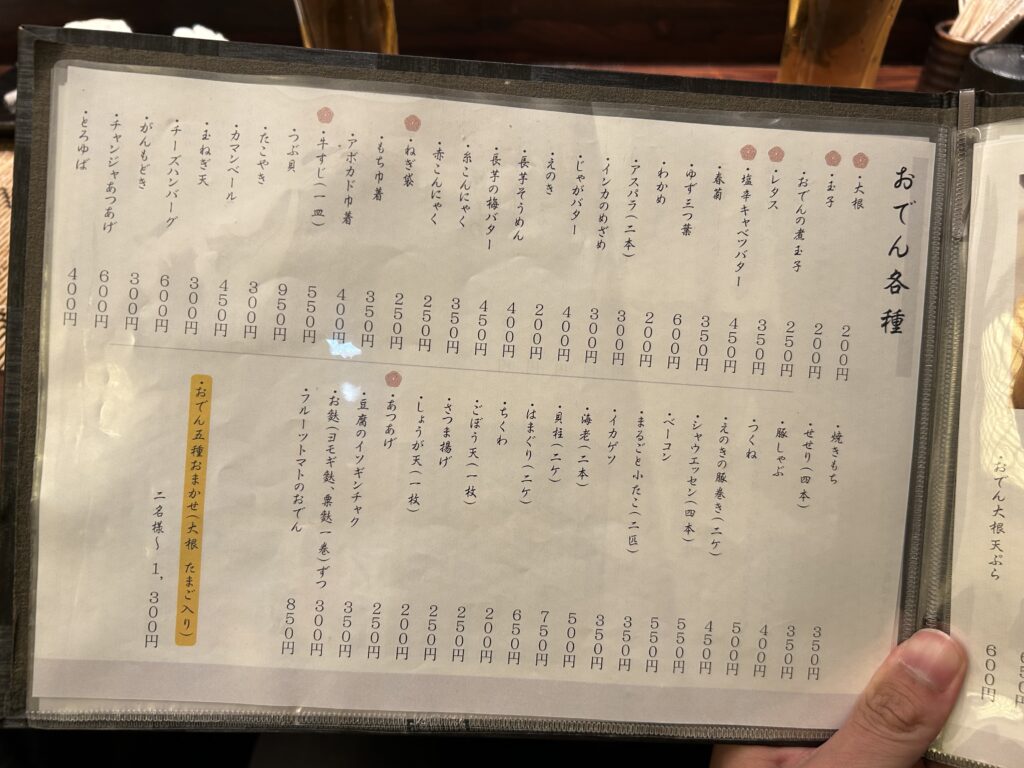 おでん各種
・大根 200円
・玉子 200円
・おでんの煮玉子 250円
・レタス 350円
・塩辛キャベツバター 450円
・春菊 350円
・ゆず三つ葉 600円
・わかめ 200円
・アスパラ(二本) 300円
・インカのめざめ 300円
・じゃがバター 400円
・えのき 200円
・長芋そうめん 400円
・長芋の梅バター 450円
・糸こんにゃく 350円
・赤こんにゃく 250円
・ねぎ袋 250円
・もち巾着 350円
・アボカド巾着 400円
・牛すじ(一皿) 550円
・つぶ貝 950円
・たこやき 300円
・カマンベール 450円
・玉ねぎ天 300円
・チーズハンバーグ 600円
・がんもどき 300円
・チャンジャあつあげ 600円
・とろゆば 400円
・焼きもち 350円
・せせり(四本) 350円
・豚しゃぶ 400円
・つくね 500円
・えのきの豚巻き(二ケ) 450円
・シャウエッセン(四本) 550円
・ベーコン 550円
・まるごと小たこ(二匹) 350円
・イカゲソ 350円
・海老(二本) 500円
・貝柱(二ケ) 750円
・はまぐり(二ケ) 650円
・ちくわ 200円
・ごぼう天(一枚) 250円
・さつま揚げ 250円
・しょうが天(一枚) 200円
・あつあげ 250円
・豆腐のイソギンチャク 350円
・お麩(ヨモギ麩、粟麩一巻)ずつ 300円
・フルーツトマトのおでん 850円
・おでん五種おまかせ(大根 たまご入り)
二名様〜 1,300円
・おでん大根天ぷら 600円